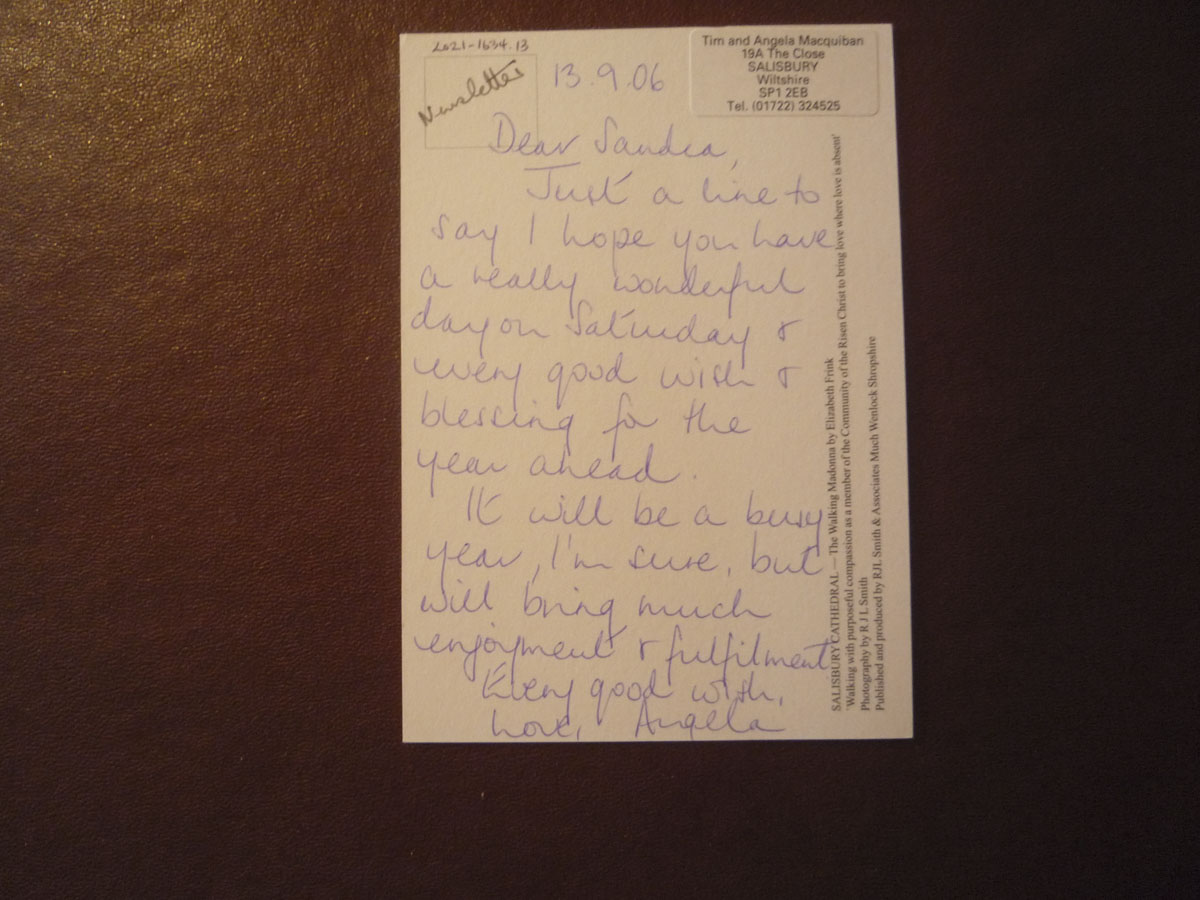 2021-1634.13
Newsletter
13.9.06
Tim and Angela Macquiban
19A The Close
SALISBURY
Wiltshire
SP1 2EB
Tel. (01722) 324525
Dear Sandra,
Just a line to
say I hope you have
a really wonderful
day on Saturday &
every good wish &
blessing for the
year ahead.
It will be a busy
year, I'm sure, but
will bring much
enjoyment & fulfilment.
Every good wish,
Love, Angela
SALISBURY CATHEDRAL — The Walking Madonna by Elizabeth Frink
'Walking with purposeful compassion as a member of the Community of the Risen Christ to bring love where love is absent'
Photography by R J L Smith
Published and produced by RJL Smith & Associates Much Wenlock Shropshire